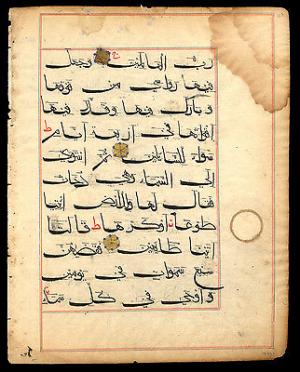 رب العالمين وجعل
فيها رواسي من فوقها
وبارك فيها وقدر فيها
اقواتها في اربعة ايام
سواء للسائلين ثم استوى
الى السماء وهي دخان
فقال لها وللارض ائتيا
طوعا او كرها قالتا
اتينا طائعين فقضيهن
سبع سموات في يومين
واوحى في كل سماء